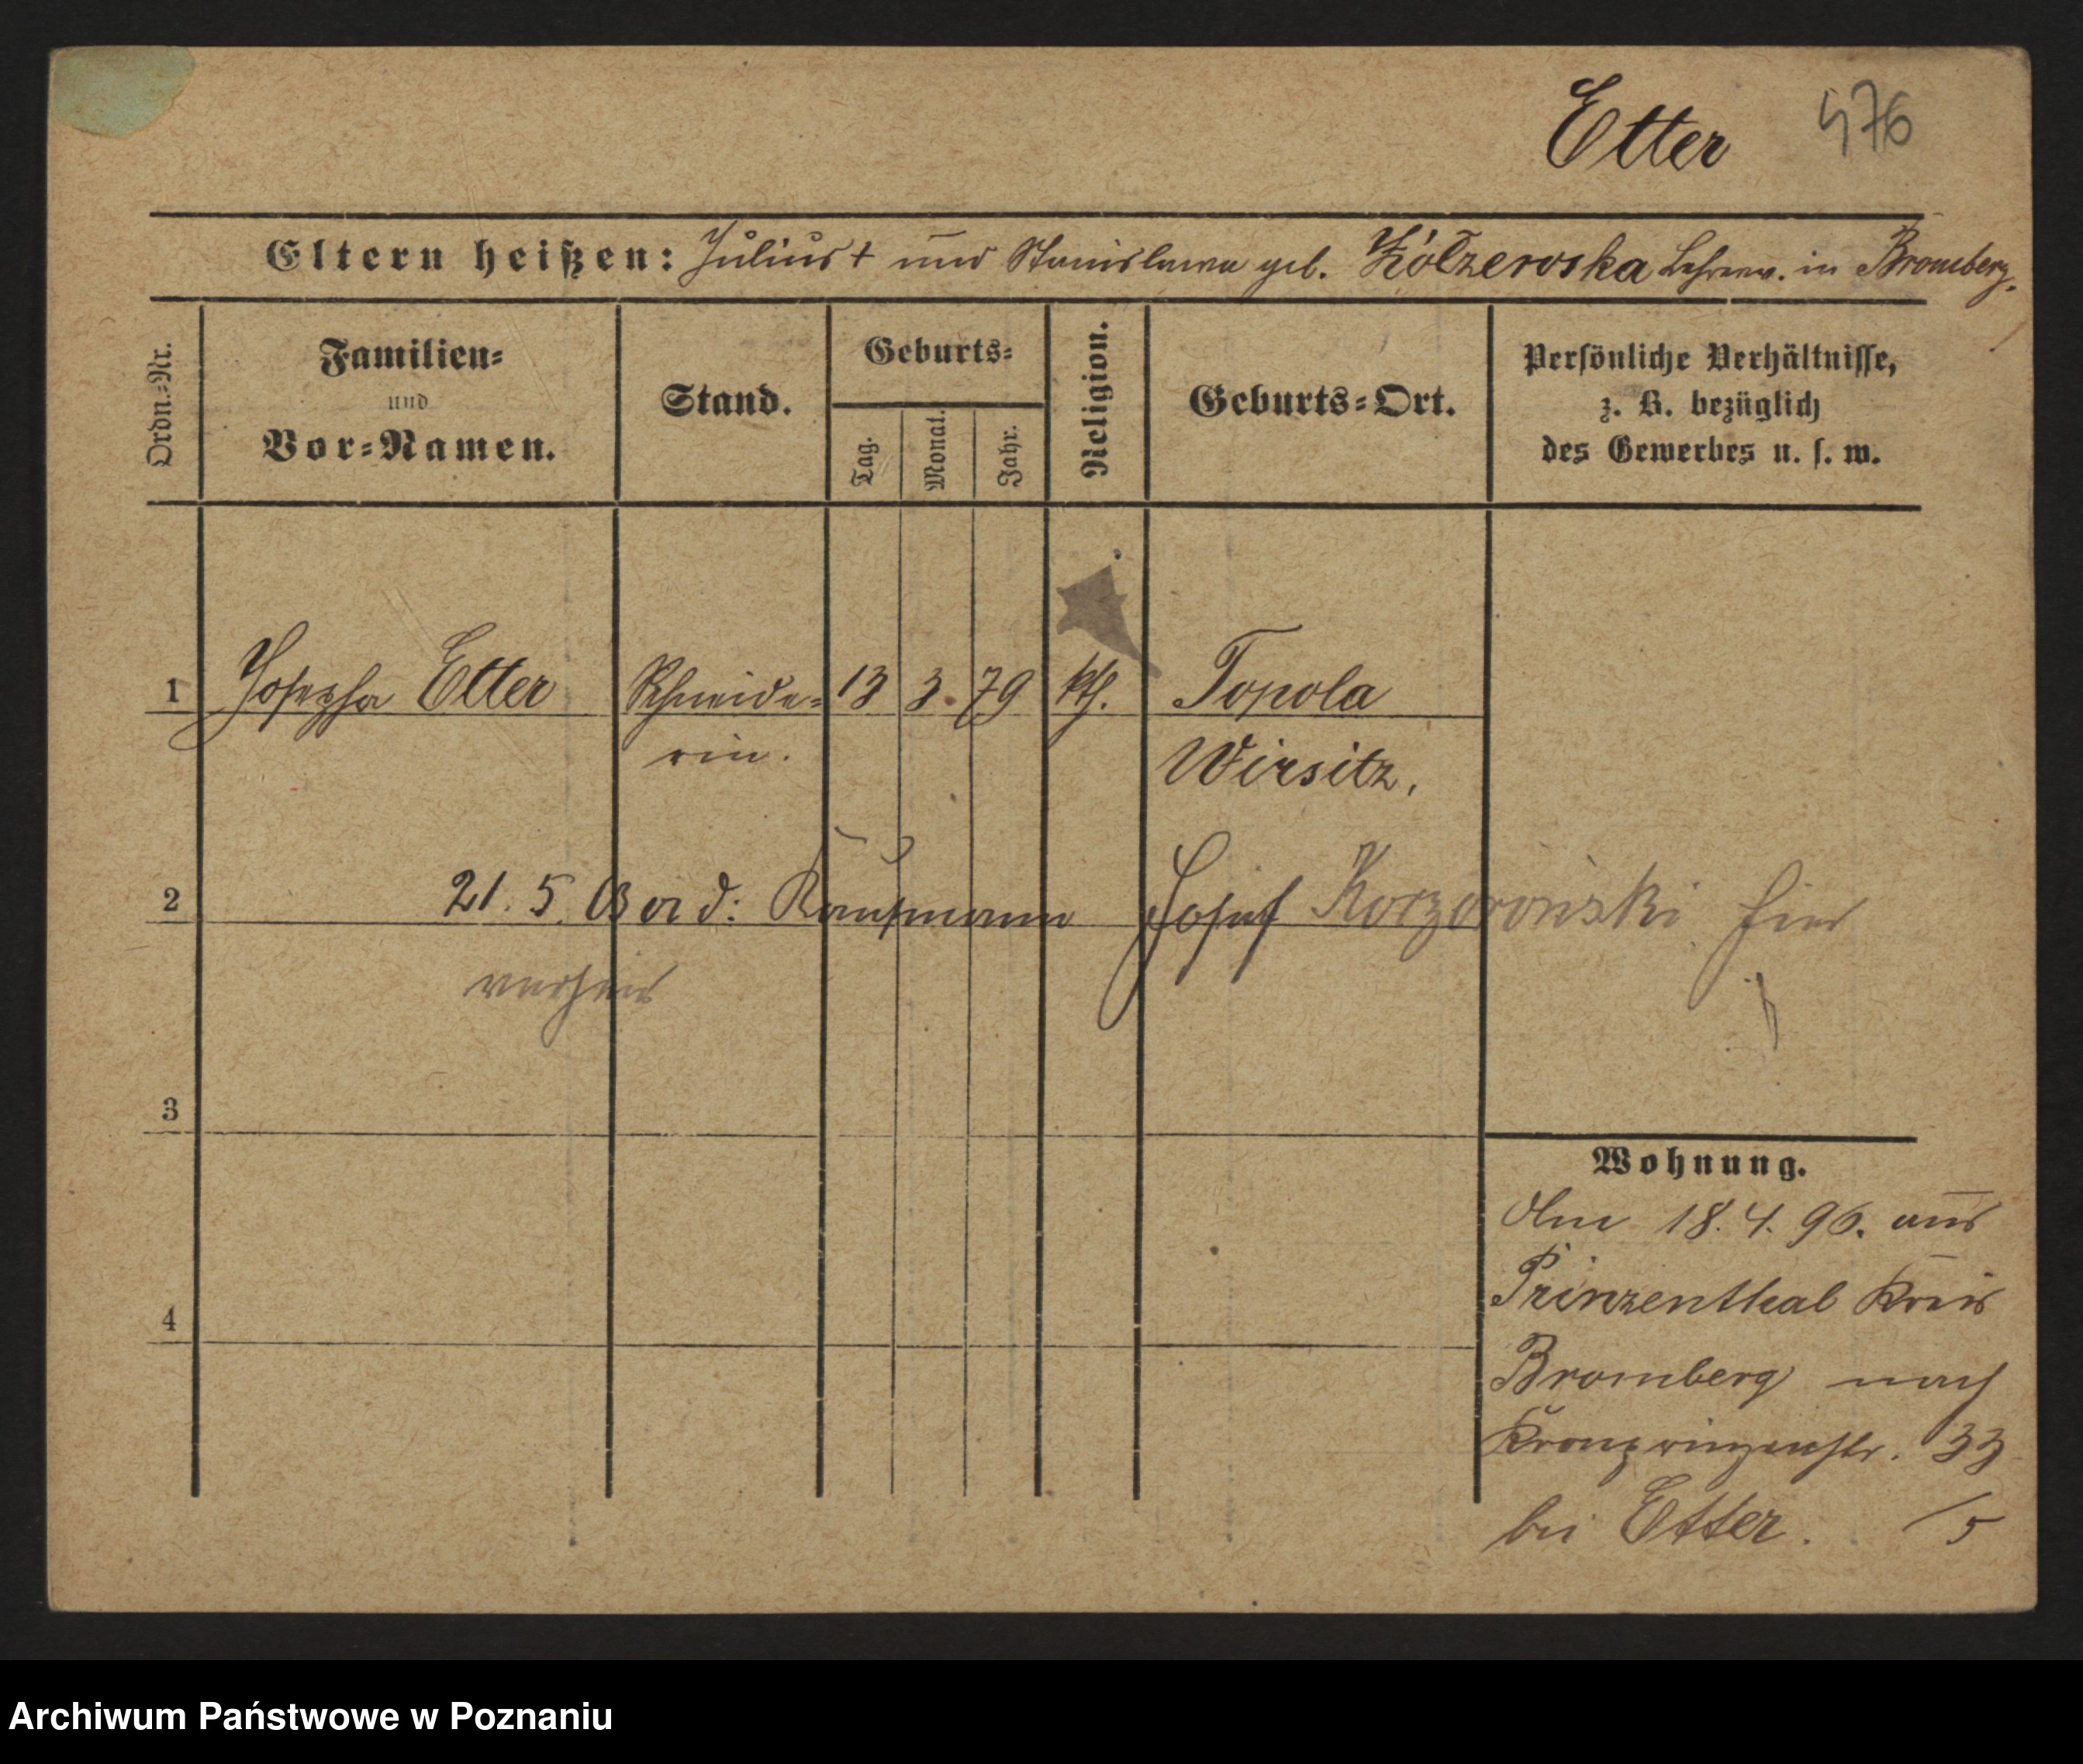 Etter 476
Eltern heißen: Julius † und Stanislawa geb. in Bromberg.
Ordn.-Nr.
Familien-
und
Vor-Namen.
Stand.
Geburts-
Tag.
Monat.
Jahr.
Religion.
Geburts-Ort.
Persönliche Verhältnisse,
z. B. bezüglich
des Gewerbes u. s. w.
1 Josepha Etter Schneide- 13 3. 79 kth. Topola
rin. Wirsitz,
2 21. 5. Kaufmann Josef hier
verheir
3
4
Wohnung.
Am 18. 4. 96. aus
Prinzenthal Kreis
Bromberg nach
Kronprinzenstr. 33
bei Etter. /5
Archiwum Państwowe w Poznaniu